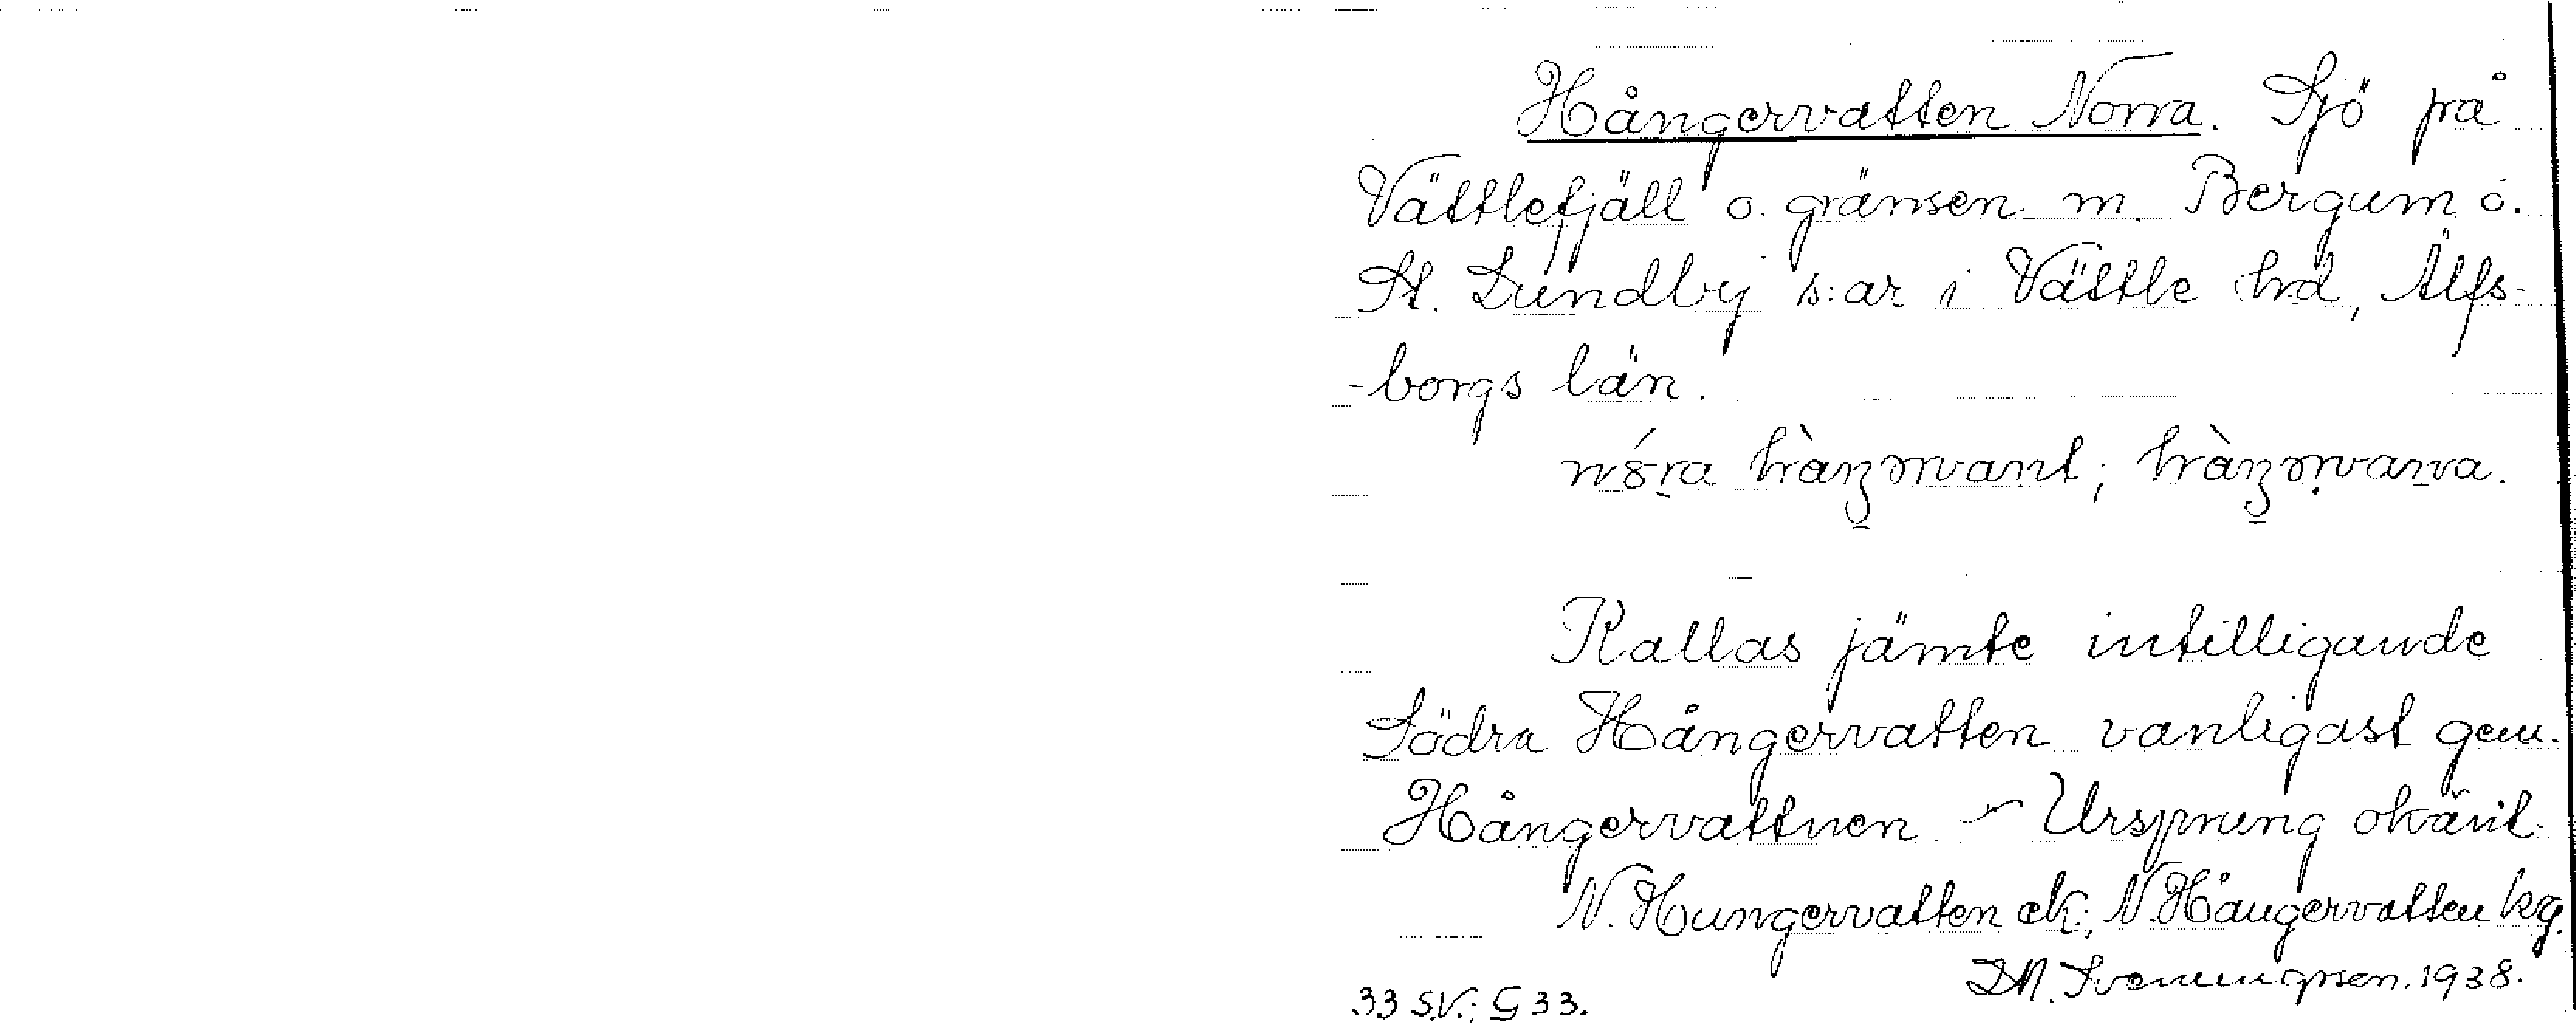 Hångervatten Norra. Sjö på
Vättlefjäll o. gränsen m. Bergum o.
St. Lundby s:ar i Vättle hrd, Älfs-
-borgs län.
Kallas jämte intilligande
Södra Hångervatten vanligast gem.
Hångervattnen – Ursprung okänt.
N. Hungervatten ek; N. Hångervatten kg.
33 S.V.; G 33.